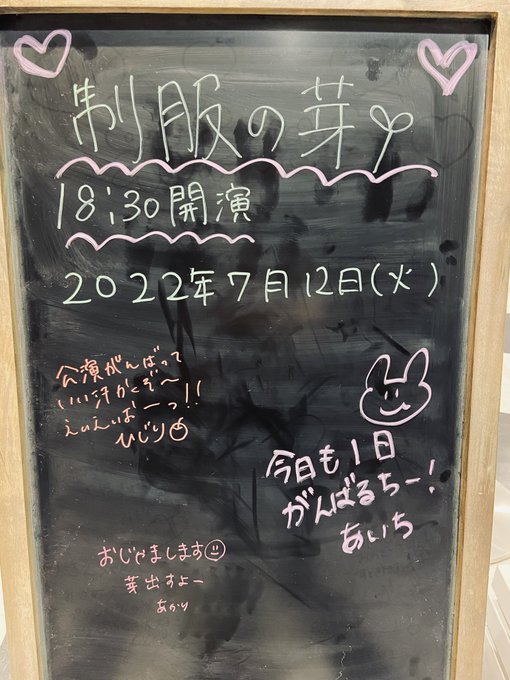 制服の芽
18:30開演
2022年7月12日(火)
公演がんばって
いい汗かくぞ〜
えいえいおーっ!!
ひじり
今日も1日
がんばるちー!
あいち
おじゃまします
芽出すよー
あかり